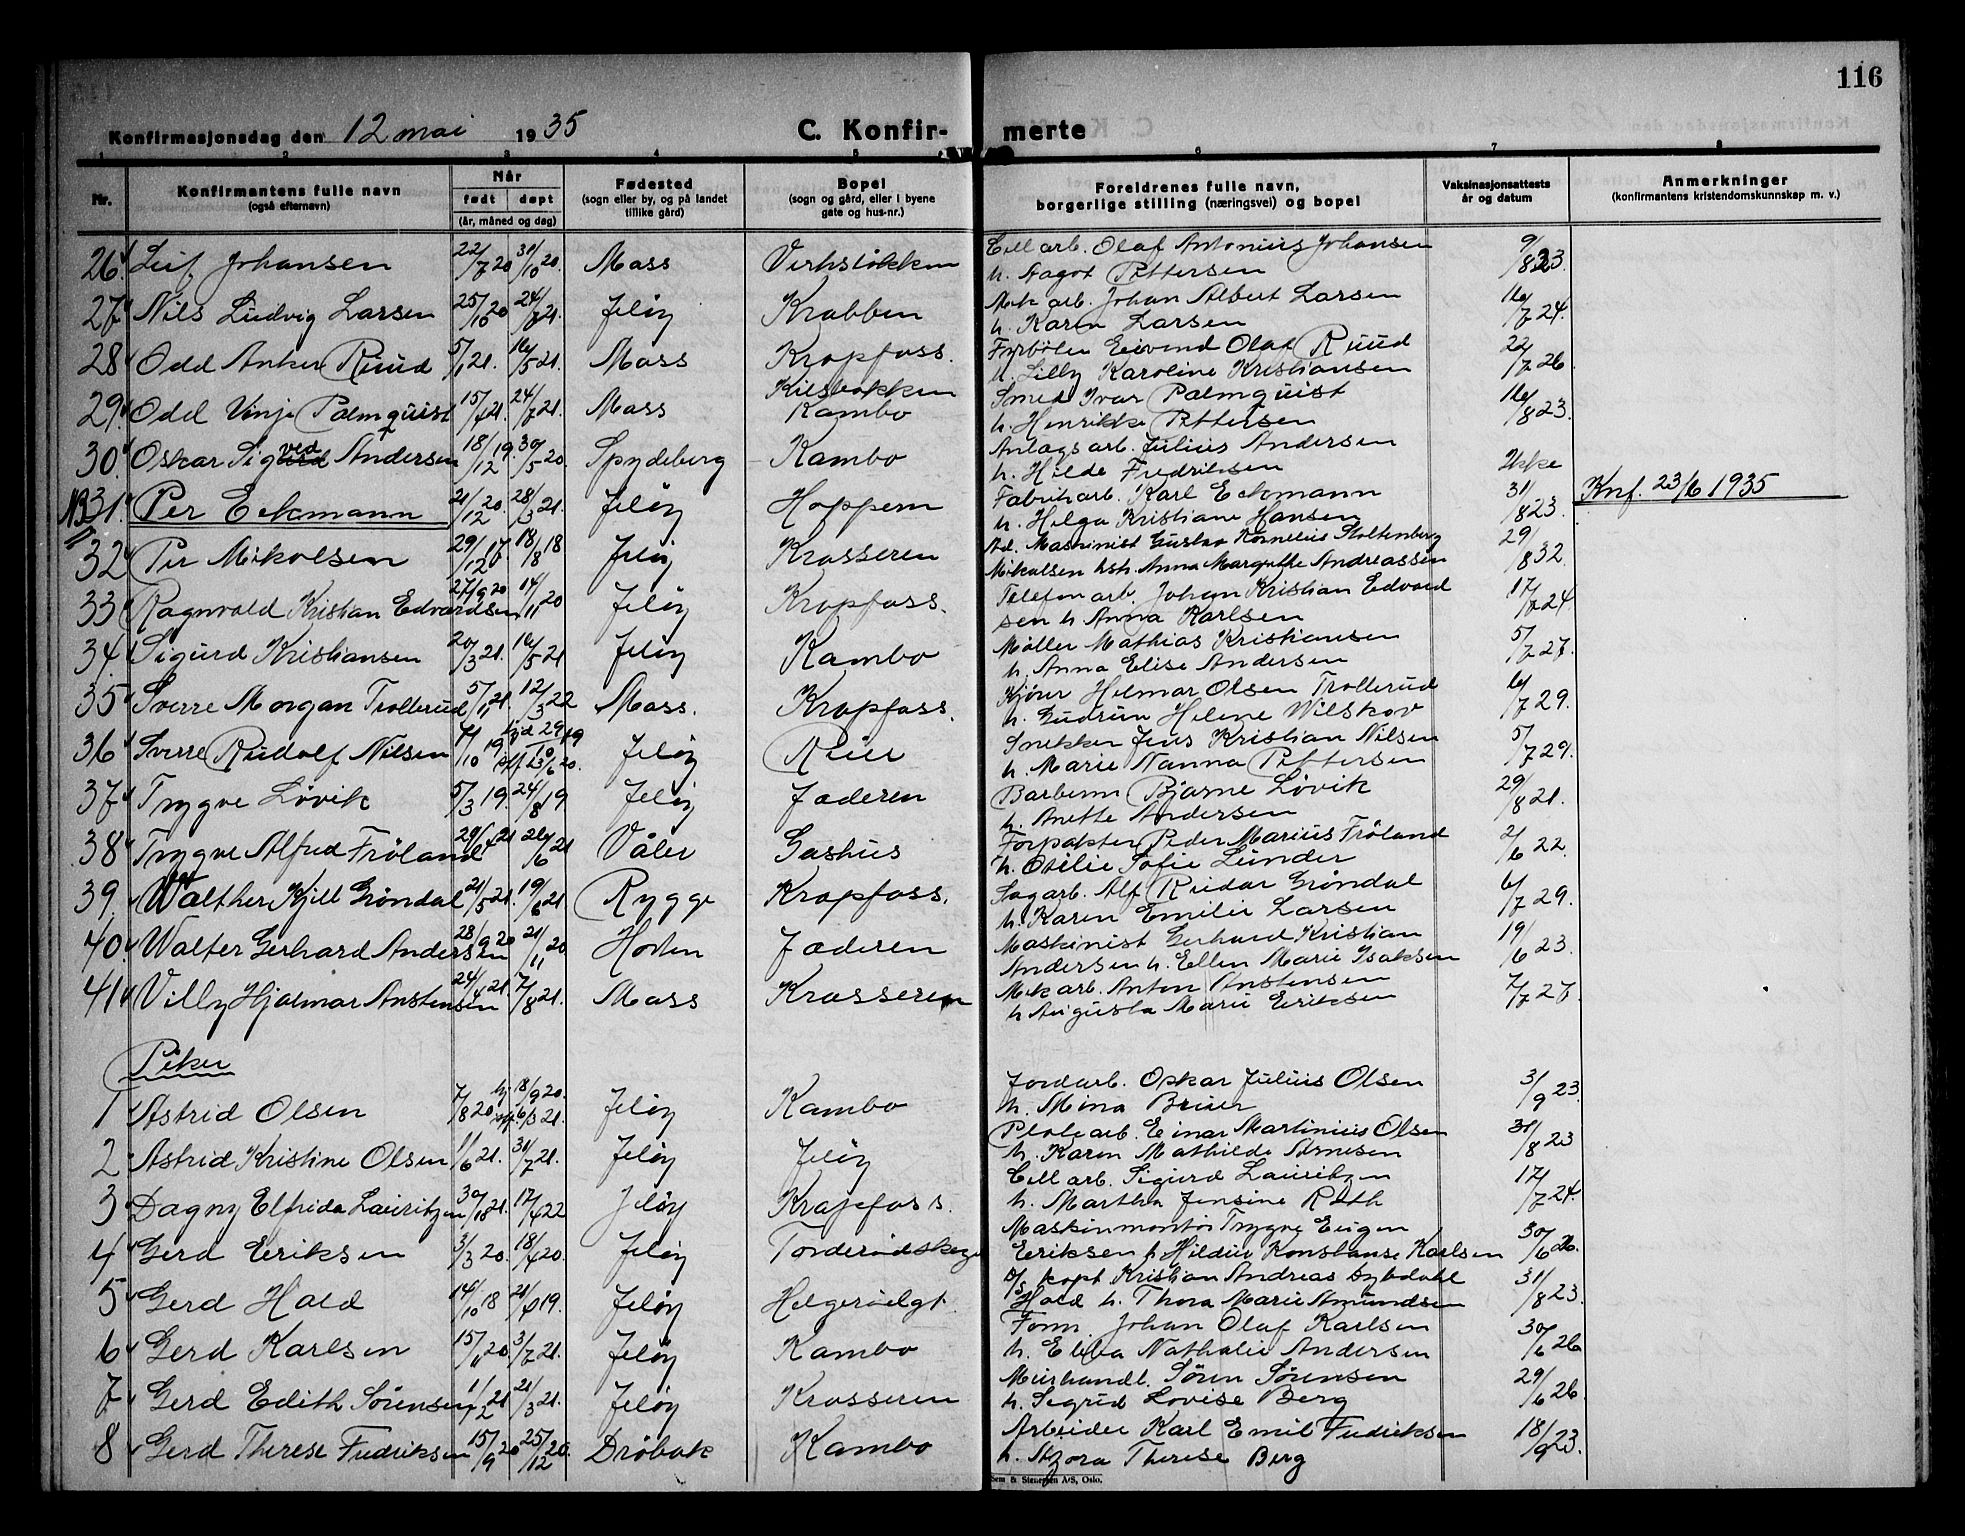 116
Konfirmasjonsdag den 12 mai 1935 C. Konfirmerte
1 2 3 4 5 6 7 8
Nr. Konfirmantens fulle navn (også efternavn) Når født døpt (år, måned og dag) Fødested (sogn eller by, og på landet tillike gård) Bopel (sogn og gård, eller i byene gate og hus-nr.) Foreldrenes fulle navn, borgerlige stilling (næringsvei) og bopel Vaksinasjonsattests år og datum Anmerkninger (konfirmantens kristendomskunnskap m. v.)
26. Leif Johansen 22/7 20 31/10 20. Moss Verkstokken Cell arb. Olaf Antonius Johansen 9/8 23.
h. Pettersen
27 Nils Ludvig Larsen 25/10 20 24/ 21. Jeløy Krabben Mek arb. Johan Albert Larsen 16/7 24.
h. Karen Larsen
28 Odd Anker Ruud 5/1 21. 16/5 21. Moss Kropfoss. Fyrbøter Eivind Olaf Ruud 22/7 26
h. Lilly Karoline Kristiansen
29. Odd Vinje Palmquist 15/4 21. 24/7 21. Moss Kulsbakken Kambo Smed Ivar Palmquist 16/8 23.
h. Henrikke Pettersen
30. Oskar Sigved Andersen 18/12 19. 30/5 20. Spydeberg Kambo Anlegs arb. Julius Andersen Ikke
h. Hilde Fredriksen
NB 31. Per Eckmann 21/12 20. 28/3 21. Jeløy Hoppern Fabrik arb. Karl Eckmann 31/8 23. Knf. 23/6 1935
h. Helga Kristiane Hansen
32 Per Mikolsen 29/12 17 18/8 18 Jeløy Krosseren Ad. Maskinist Gustav Kornelius Stoltenberg 29/8 32.
Mikalsen hsh. Anna Margrethe Andreassen
33 Ragnvald Kristian Edvardsen 27/9 20 14/11 20 Jeløy Kropfoss. Telefon arb. Johan Kristian Edvard 17/7 24
sen h Anna Karlsen
34 Sigurd Kristiansen 20/3 21. 16/5 21 Jeløy Kambo Møller Mathias Kristiansen 5/7 27.
h. Anna Elise Andersen
35 Sverre Morgan Trollerud 5/11 21. 12/3 22 Moss. Kropfoss. Kjører Helmar Olsen Trollerud 6/7 29.
h. Gudrun Helene Wilskov
36 Sverre Rudolf Nilsen 4/10 19. hjd 29/10 19 off 13/6 20. Jeløy Reier Snekker Jens Kristian Nilsen 5/7 29.
h. Marie Nanna Pettersen
37 Trygve Løvik 5/3 19. 24/8 19 Jeløy Jæderen Barberm Bjarne Løvik 29/8 21.
h. Anette Andersen
38 Trygve Alfred Frøland 29/4 21 26/6 21 Våler Gashus Forpakter Peder Marius Frøland 2/6 22.
h. Otilie Sofie Lunder
39. Walther Kjell Grøndal 21/5 21. 19/6 21 Rygge Kropfoss. Sag arb. Alf Reidar Grøndal 6/7 29.
h. Karen Emilie Larsen
40. Walter Gerhard Andersen 28/9 20 21/11 20 Horten Jæderen Maskinist Gerhard Kristian 19/6 23.
Andersen h. Ellen Marie Isaksen
41 Villy Hjalmar Anstensen 24/4 21. 7/8 21. Moss Krosseren Mek arb. Anton Anstensen 7/7 27.
h Augusta Marie Eriksen
Piker
1 Astrid Olsen 7/8 20 hj 18/9 20. off. 6/3 21. Jeløy Kambo Jordarb. Oskar Julius Olsen 3/9 23.
h. Mina Brier
2 Astrid Kristine Olsen 1/6 21. 31/7 21. Jeløy Jeløy Platearb. Einar Martinius Olsen 31/8 23
h. Karen Mathilde Arnesen
3 Dagny Elfrida Lauritzen 30/10 21. 17/4 22 Jeløy Kropfoss. Cell arb. Sigurd Lauritzen 17/7 24.
h. Martha Jensine Roth
4 Gerd Eriksen 3/3 20. 18/4 20. Jeløy Maskinmontør Trygve Eugen 30/6 26.
Eriksen h Hildur Konstanse Karlsen
5 Gerd Hold 14/10 18 21/4 19. Jeløy Helgerødgt. D/S kapt Kristian Andreas Dybdahl 31/8 23.
Hold h. Thora Marie Amundsen
6 Gerd Karlsen 15/11 20 3/7 21. Jeløy Kambo Form. Johan Olaf Karlsen 30/6 26
h. Elida Nathalie Andersen
7 Gerd Edith Sørensen 1/2 21 21/3 21. Jeløy Krosseren Murhandl. Søren Sørensen 29/6 26.
h. Sigrid Lovise Berg
8 Gerd Therese Fredriksen 15/9 20 25/12 20. Drøbak Kambo Arbeider Karl Emil Fredriksen 18/9 23.
h. Azora Therese Berg
Sem & Stenersen A/S, Oslo.